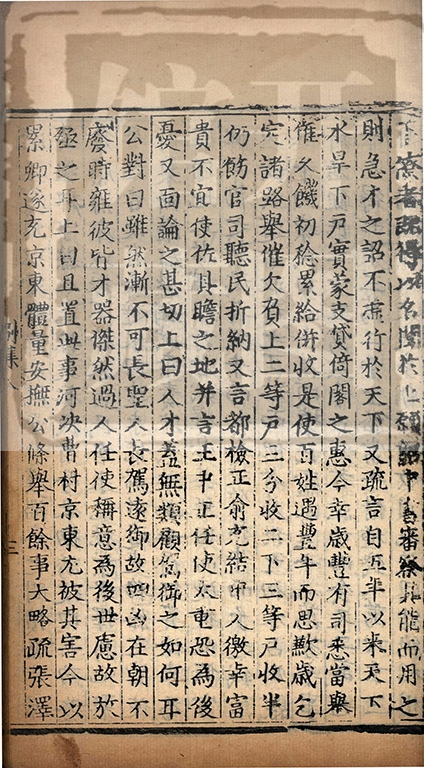 下寮者既得以名聞於上願詔中書審察其能而用之
則急才之詔不虛行於天下又疏言自五年以來天下
水旱下戶實蒙支貸倚閣之惠今幸歲豐有司悉當舉
催久饑初稔累給併收是使百姓遇豐年而思歉歲乞
完諸路舉催欠負上二等戶三分收二下三等戶收半
仍飭官司聽民折納又言都檢正俞充結中人徼幸富
貴不宜使佐具瞻之地并言王中正任使太重恐為後
憂又面論之甚切上曰人才蓋無類顧駕御之如何耳
公對曰雖然漸不可長聖人長駕遠御故四凶在朝不
廢時雍彼皆才器傑然過人任使稱意為後世慮故於
亟之耳上曰且置此事河決曹村京東尤被其害今以
累卿遂充京東體量安撫公條舉百餘事大略疏張澤
別集
三